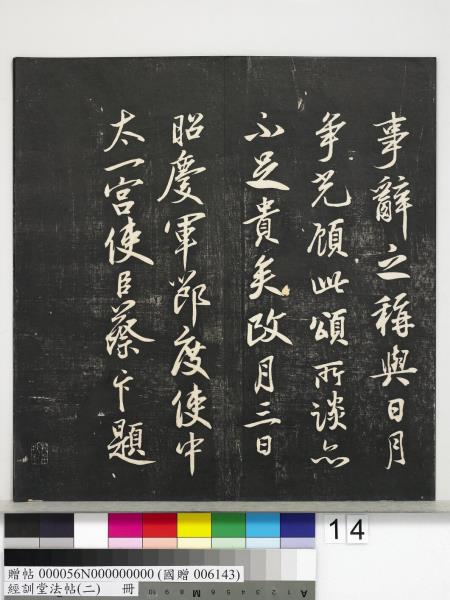 事辭之稱與日月
争光顧此頌所談亦
不足貴矣政月三日
昭慶軍節度使中
太一宮使臣蔡卞題
14
贈帖 000056N000000000 (國贈 006143)
經訓堂法帖(二) 冊